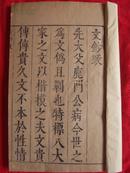 文鈔敘
先大父鹿門公病今世之
爲文僞且剿也特標八大
家之文以楷模之夫文貴
傳傳貴久文不本於性情